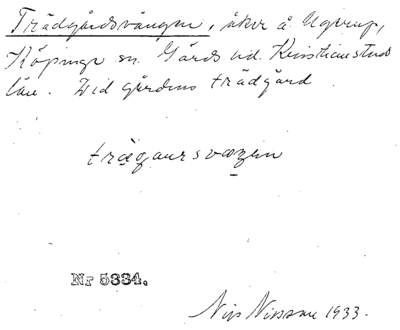 Trädgårdsvången, åker å Ugerup,
Köpinge sn. Gärds hd. Kristianstads
län. Vid gårdens trädgård
träqaursvaqen
Nr 5334.
Nils Nilsson 1933.